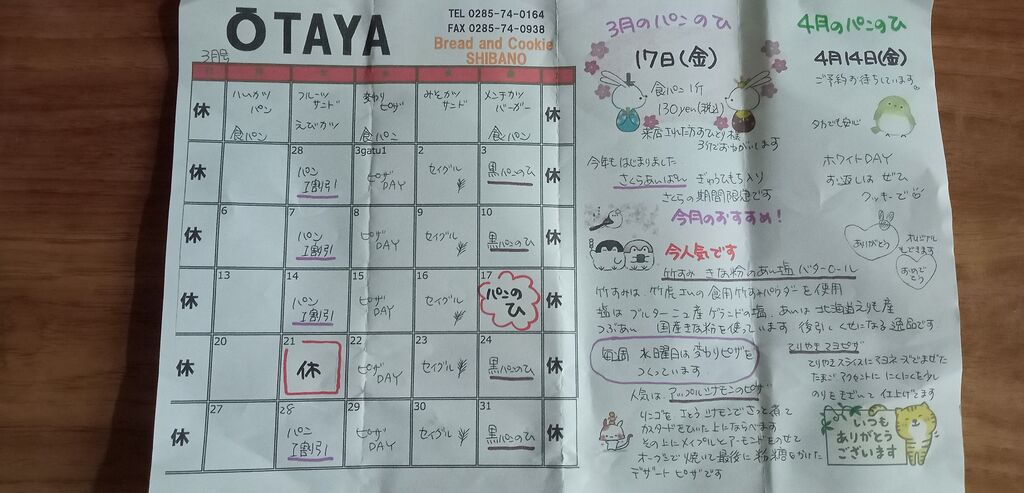 ŌTAYA
TEL 0285-74-0164
FAX 0285-74-0938
Bread and Cookie
SHIBANO
3月号
休
ハムカツ
パン
食パン
フルーツ
サンド
えびカツ
変わり
ピザ
食パン
みそカツ
サンド
メンチカツ
バーガー
食パン
休
休
28
パン
1割引
3gatu1
ピザ
DAY
2
セイグル
3
黒パンのひ
休
休
6
7
パン
1割引
8
ピザ
DAY
9
セイグル
10
黒パンのひ
休
休
13
14
パン
1割引
15
ピザ
DAY
16
セイグル
17
パンの
ひ
休
休
20
21
休
22
ピザ
DAY
23
セイグル
24
黒パンのひ
休
休
27
28
パン
1割引
29
ピザ
DAY
30
セイグル
31
黒パンのひ
休
3月のパンのひ
17日(金)
食パン1斤
130yen(税込)
来店された方おひとり様
3斤でおねがいします
今年もはじまりました
さくらあんぱん ぎゅうひもち入り
さくらの期間限定です
今月のおすすめ!
今人気です
竹すみ きな粉のあん塩バターロール
竹すみは、竹虎さんの食用竹すみパウダーを使用
塩は ブルターニュ産ゲランドの塩、あんは北海道えりも産
つぶあん 国産きな粉を使っています 後引くくせになる逸品です
毎週 水曜日は変わりピザを
つくっています
人気は、アップルシナモンのピザ
リンゴを さとう シナモンで さっと煮て
カスタードをひいた上にならべます
その上にメイプルとアーモンドをのせて
オーブンで焼いて最後に粉糖をかけた
デザートピザです
4月のパンのひ
4月14日(金)
ご予約お待ちしています。
夕方でも安心
ホワイトDAY
お返しは ぜひ
クッキーで
ありがとう
オリジナル
もできます
おめで
とう
てりやきマヨピザ
てりやきスライスにマヨネーズでまぜた
たまご アクセントに にんにくを少し
のりをきざいて 仕上げてます
いつも
ありがとう
ございます